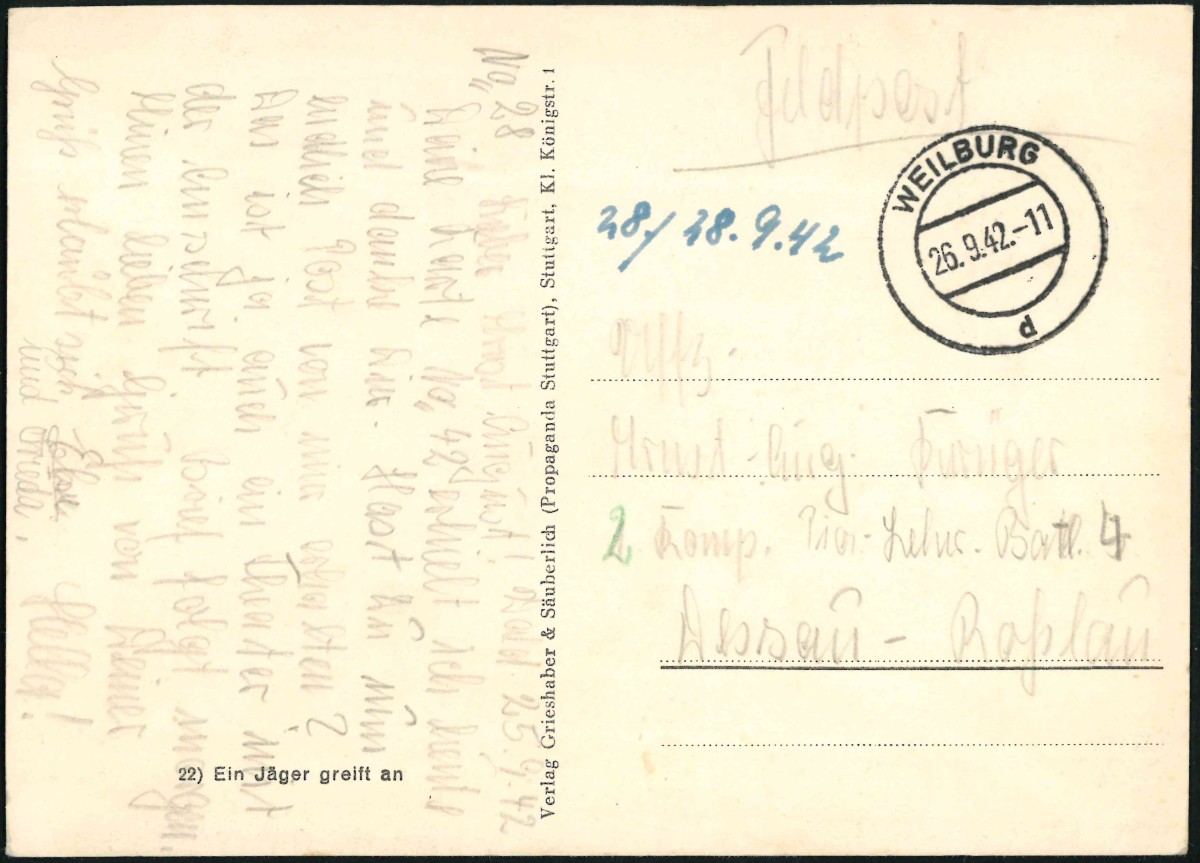 Feldpost
WEILBURG
26.9.42.-11
d
28./28.9.42
Uffz.
Ernst Aug. Krüger
2 Komp. Pion-Lehr-Batl. 4
Dessau - Roßlau
Verlag Grieshaber & Säuberlich (Propaganda Stuttgart), Stuttgart, Kl. Königstr. 1
No, 28
Lieber Ernst August! 25.9.42
Deine Karte No, 42 erhielt ich heute
und danke Dir. Hast Du nun
endlich Post von mir
Das ist ja auch ein Theater mit
der Brief folgt morgen.
Einen lieben Gruß von Deiner
Hella!
Gruß sich
und Frieda.
22) Ein Jäger greift an